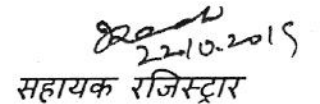 22.10.2015
सहायक रजिस्ट्रार